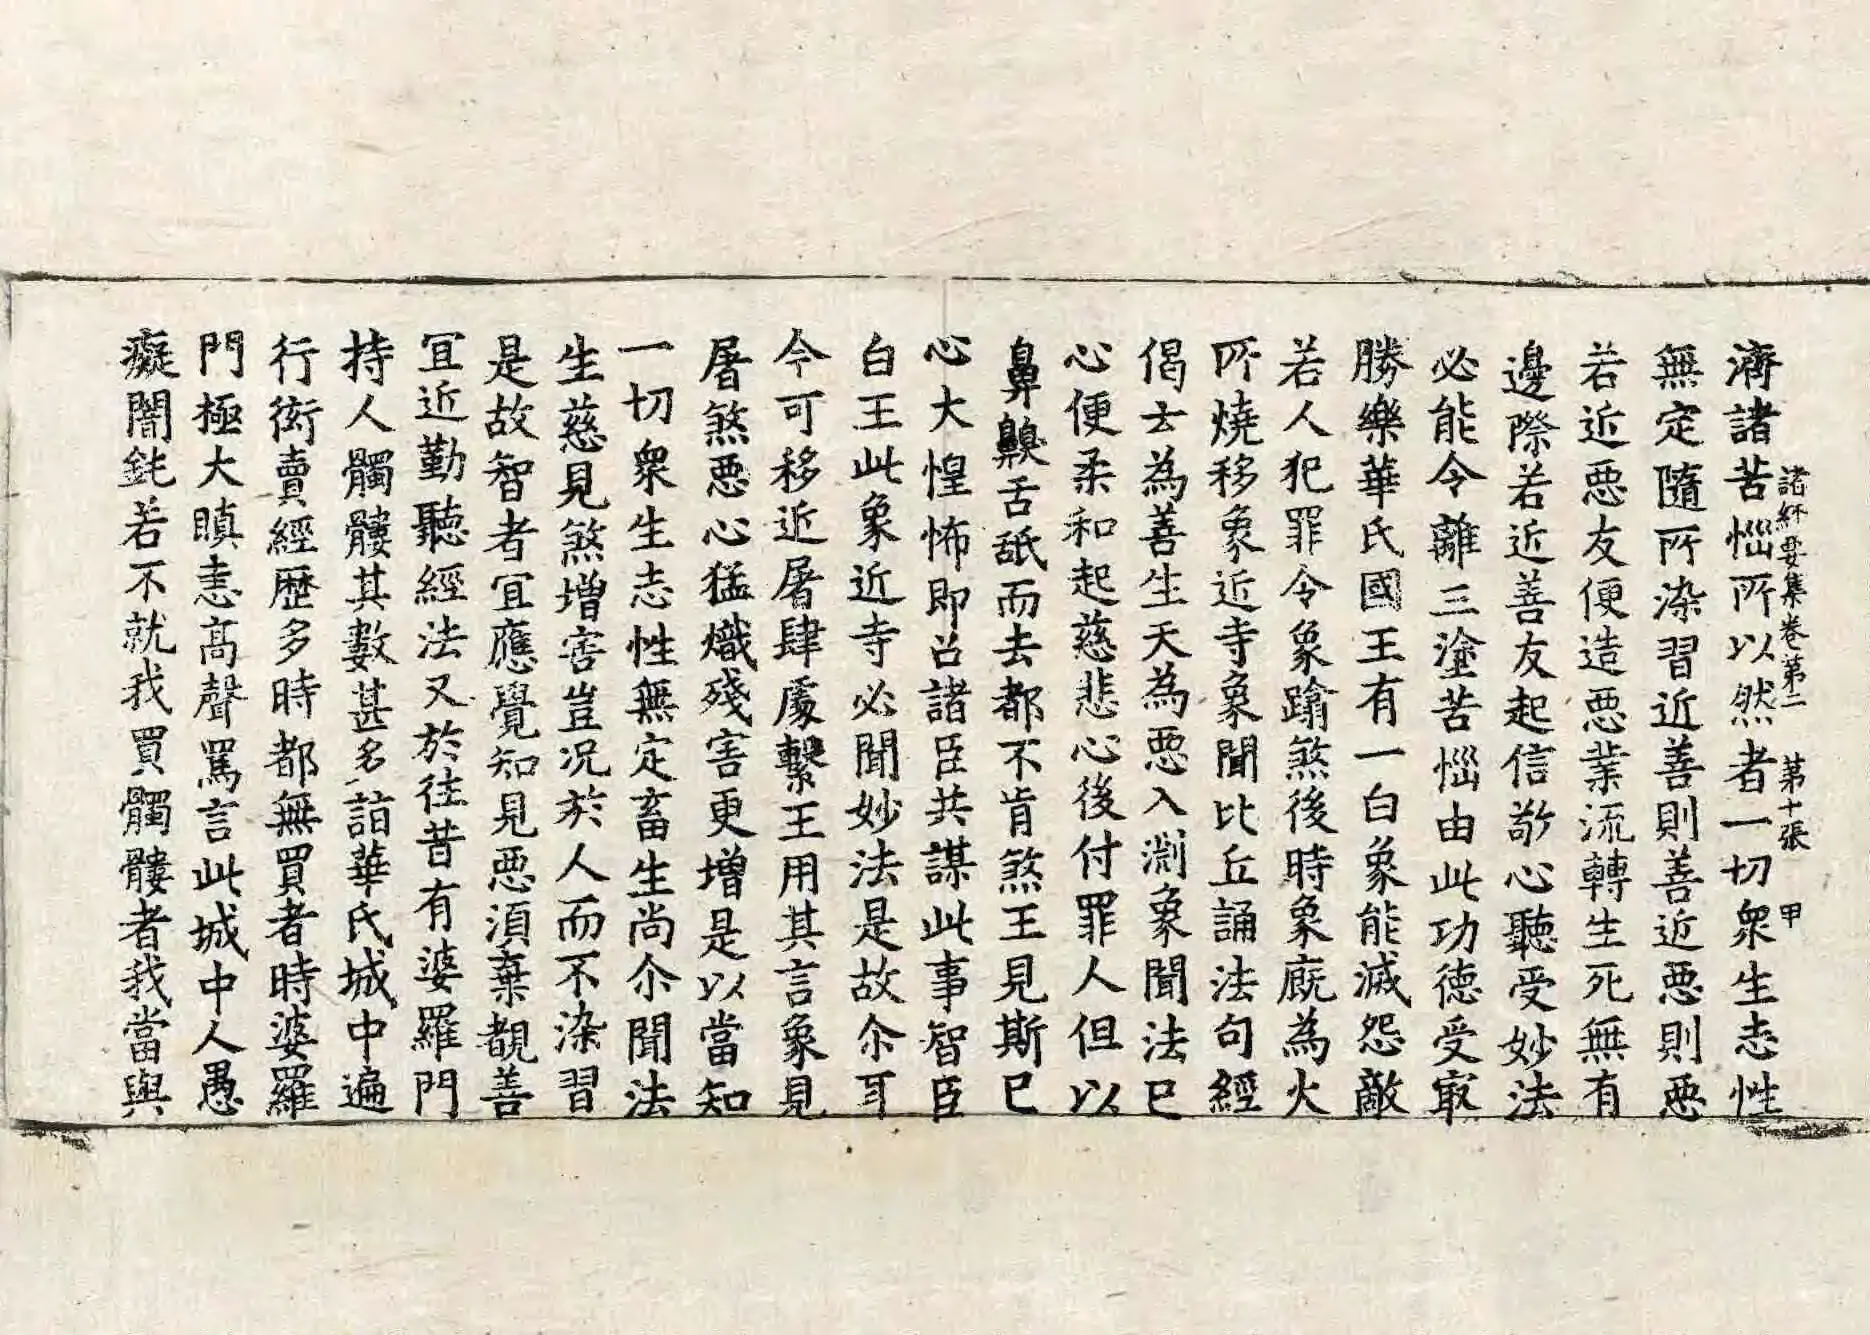 諸經要集卷第二　第十張　甲
濟諸苦惱所以然者一切眾生志性
無定隨所染習近善則善近惡則惡
若近惡友便造惡業流轉生死無有
邊際若近善友起信敬心聽受妙法
必能令離三塗苦惱由此功德受㝡
勝樂華氏國王有一白象能滅怨敵
若人犯罪令象蹋煞後時象廐為火
所燒移象近寺象聞比丘誦法句經
偈云為善生天為惡入淵象聞法已
心便柔和起慈悲心後付罪人但以
鼻齅舌舐而去都不肯煞王見斯已
心大惶怖即召諸臣共謀此事智臣
白王此象近寺必聞妙法是故尒耳
今可移近屠肆處繫王用其言象見
屠煞惡心猛熾殘害更增是以當知
一切眾生志性無定畜生尚尒聞法
生慈見煞增害豈況於人而不染習
是故智者宜應覺知見惡須棄覩善
宜近勤聽經法又於往昔有婆羅門
持人髑髏其數甚多詣華氏城中遍
行衒賣經歷多時都無買者時婆羅
門極大瞋恚高聲罵言此城中人愚
癡闇鈍若不就我買髑髏者我當與